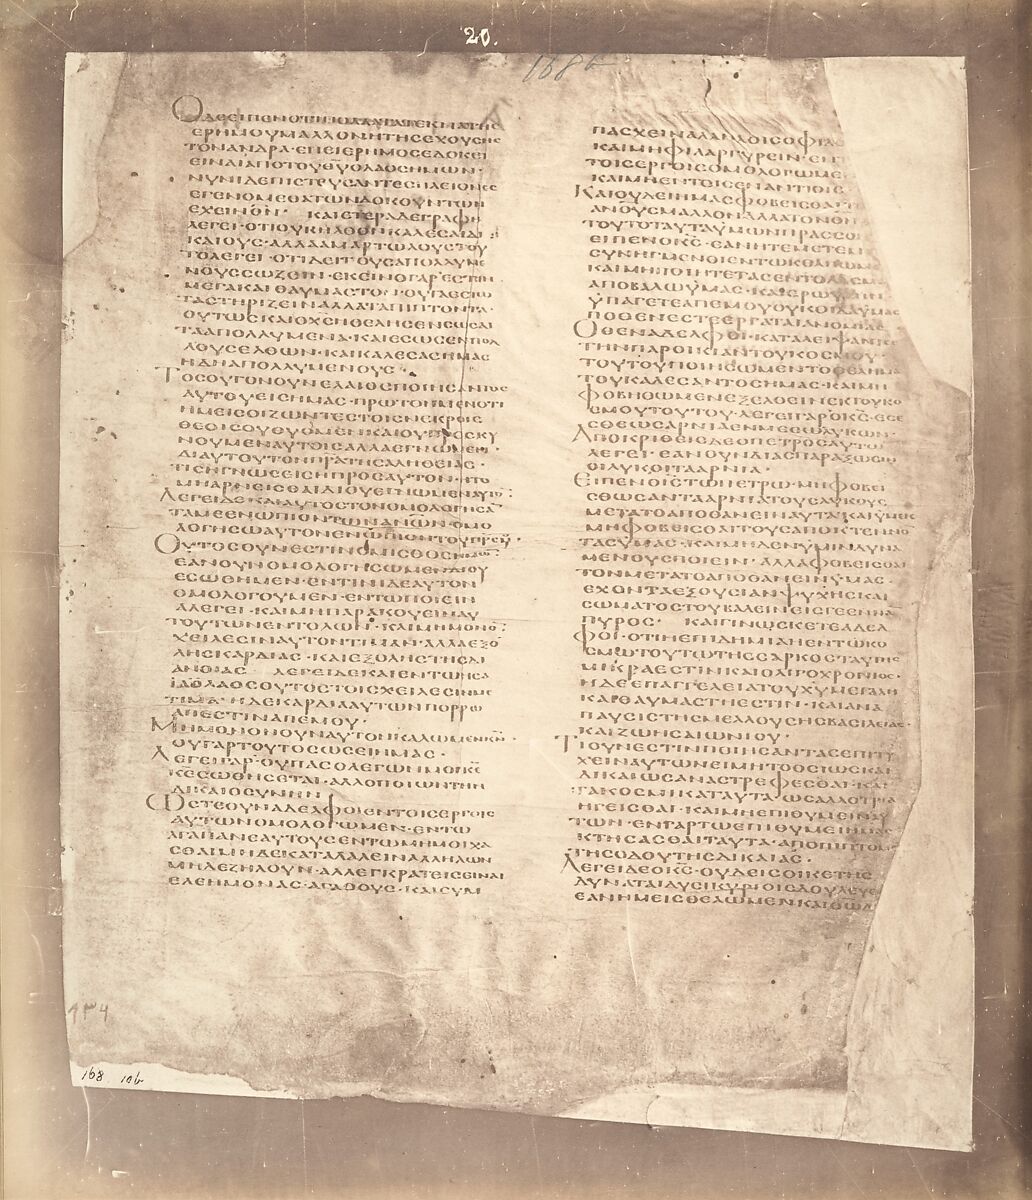 20.
168b
ΕΡΗΜΟΥΜΑΛΛΟΝΗΤΗΣΕΧΟΥΣΗΣ
ΤΟΝΑΝΔΡΑ·ΕΠΕΙΕΡΗΜΟΣΕΔΟΚΕΙ
ΕΙΝΑΙΑΠΟΤΟΥΘΥΟΛΑΟΣΗΜΩΝ·
ΝΥΝΙΔΕΠΙΣΤΕΥΣΑΝΤΕΣΠΛΕΙΟΝΕΣ
ΕΓΕΝΟΜΕΘΑΤΩΝΔΟΚΟΥΝΤΩΝ
ΕΧΕΙΝΘΝ· ΚΑΙΕΤΕΡΑΔΕΓΡΑΦΗ
ΛΕΓΕΙ·ΟΤΙΟΥΚΗΛΘΟΝΚΑΛΕΣΑΙΔΙ
ΚΑΙΟΥΣ·ΑΛΛΑΑΜΑΡΤΩΛΟΥΣΤΟΥ
ΤΟΛΕΓΕΙ·ΟΤΙΔΕΙΤΟΥΣΑΠΟΛΛΥΜΕ
ΝΟΥΣΣΩΖΕΙΝ·ΕΚΕΙΝΟΓΑΡΕΣΤΙΝ
ΜΕΓΑΚΑΙΘΑΥΜΑΣΤΟΝ·ΟΥΤΑΕΣΤΩ
ΤΑΣΤΗΡΙΖΕΙΝΑΛΛΑΤΑΠΙΠΤΟΝΤΑ·
ΟΥΤΩΣΚΑΙΟΧΣΗΘΕΛΗΣΕΝΣΩΣΑΙ
ΤΑΑΠΟΛΛΥΜΕΝΑ·ΚΑΙΕΣΩΣΕΝΠΟΛ
ΛΟΥΣΕΛΘΩΝ·ΚΑΙΚΑΛΕΣΑΣΗΜΑΣ
ΗΔΗΑΠΟΛΛΥΜΕΝΟΥΣ·
ΤΟΣΟΥΤΟΝΟΥΝΕΛΑΙΟΣΠΟΙΗΣΑΝΤΟΣ
ΑΥΤΟΥΕΙΣΗΜΑΣ·ΠΡΩΤΟΝΜΕΝΟΤΙ
ΗΜΕΙΣΟΙΖΩΝΤΕΣΤΟΙΣΝΕΚΡΟΙΣ
ΘΕΟΙΣΟΥΘΥΟΜΕΝ·ΚΑΙΟΥΠΡΟΣΚΥ
ΝΟΥΜΕΝΑΥΤΟΙΣΑΛΛΑΕΓΝΩΜΕΝ·
ΔΙΑΥΤΟΥΤΟΝΠΡΑΤΗΣΑΛΗΘΕΙΑΣ·
ΤΙΣΗΓΝΩΣΕΙΣΗΠΡΟΣΑΥΤΟΝ·ΗΤΟ
ΜΗΑΡΝΕΙΣΘΑΙΔΙΟΥΕΓΝΩΜΕΝΑΥΤΟ
ΛΕΓΕΙΔΕΚΑΙΑΥΤΟΣΤΟΝΟΜΟΛΟΓΗΣΑ
ΤΑΜΕΕΝΩΠΙΟΝΤΩΝΑΝΩΝ·ΟΜΟ
ΛΟΓΗΣΩΑΥΤΟΝΕΝΩΠΙΟΝΤΟΥΠΡΣ
ΟΥΤΟΣΟΥΝΕΣΤΙΝΟΜΙΣΘΟΣΗΜΩ
ΕΑΝΟΥΝΟΜΟΛΟΓΗΣΩΜΕΝΔΙΟΥ
ΕΣΩΘΗΜΕΝ·ΕΝΤΙΝΙΔΕΑΥΤΟΝ
ΟΜΟΛΟΓΟΥΜΕΝ·ΕΝΤΩΠΟΙΕΙΝ
ΑΛΕΓΕΙ·ΚΑΙΜΗΠΑΡΑΚΟΥΕΙΝΑΥ
ΤΟΥΤΩΝΕΝΤΟΛΩΝ·ΚΑΙΜΗΜΟΝΟ
ΧΕΙΛΕΣΙΝΑΥΤΟΝΤΙΜΑΝ·ΑΛΛΑΕΞΟ
ΛΗΣΚΑΡΔΙΑΣ·ΚΑΙΕΞΟΛΗΣΤΗΣΔΙ
ΑΝΟΙΑΣ· ΛΕΓΕΙΔΕΚΑΙΕΝΤΩΗΣΑ
ΙΑΟΛΑΟΣΟΥΤΟΣΤΟΙΣΧΕΙΛΕΣΙΝΜΕ
ΤΙΜΑ·ΗΔΕΚΑΡΔΙΑΑΥΤΩΝΠΟΡΡΩ
ΑΠΕΣΤΙΝΑΠΕΜΟΥ·
ΜΗΜΟΝΟΝΟΥΝΑΥΤΟΝΚΑΛΩΜΕΝΚΝ·
ΟΥΓΑΡΤΟΥΤΟΣΩΣΕΙΗΜΑΣ·
ΛΕΓΕΙΓΑΡ·ΟΥΠΑΣΟΛΕΓΩΝΜΟΙΚΕ
ΚΕΣΩΘΗΣΕΤΑΙ·ΑΛΛΟΠΟΙΩΝΤΗΝ
ΔΙΚΑΙΟΣΥΝΗΝ
ΩΣΤΕΟΥΝΑΔΕΛΦΟΙΕΝΤΟΙΣΕΡΓΟΙΣ
ΑΥΤΟΝΟΜΟΛΟΓΩΜΕΝ·ΕΝΤΩ
ΑΓΑΠΑΝΕΑΥΤΟΥΣΕΝΤΩΜΗΜΟΙΧΑ
ΣΘΑΙΜΗΔΕΚΑΤΑΛΑΛΕΙΝΑΛΛΗΛΩΝ
ΜΗΔΕΖΗΛΟΥΝ·ΑΛΛΕΓΚΡΑΤΕΙΣΕΙΝΑΙ
ΕΛΕΗΜΟΝΑΣ·ΑΓΑΘΟΥΣ·ΚΑΙΣΥΜ
ΠΑΣΧΕΙΝΑΛΛΗΛΟΙΣΟΦΙΛΟ
ΚΑΙΜΗΦΙΛΑΡΓΥΡΕΙΝ·ΕΝ
ΤΟΙΣΕΡΓΟΙΣΟΜΟΛΟΓΩΜΕ
ΚΑΙΜΗΕΝΤΟΙΣΕΝΑΝΤΙΟΙΣ·
ΚΑΙΟΥΔΕΙΗΜΑΣΦΟΒΕΙΣΘΑΙ
ΑΝΟΥΣΜΑΛΛΟΝΑΛΛΑΤΟΝΘΝ
ΤΟΥΤΟΤΑΥΤΑΥΜΩΝΠΡΑΣΣΟ
ΕΙΠΕΝΟΚΣ·ΕΑΝΗΤΕΜΕΤΕΜ
ΣΥΝΗΓΜΕΝΟΙΕΝΤΩΚΟΛΠΩΜ
ΚΑΙΜΗΠΟΙΗΤΕΤΑΣΕΝΤΟΛΑΣΜ
ΑΠΟΒΑΛΩΥΜΑΣ·ΚΑΙΕΡΩΥΜΙΝ
ΥΠΑΓΕΤΕΑΠΕΜΟΥΟΥΚΟΙΔΑΥΜΑΣ
ΠΟΘΕΝΕΣΤΕΕΡΓΑΤΑΙΑΝΟΜΙΑΣ
ΟΘΕΝΑΔΕΛΦΟΙ·ΚΑΤΑΛΕΙΨΑΝΤΕΣ
ΤΗΝΠΑΡΟΙΚΙΑΝΤΟΥΚΟΣΜΟΥ·
ΤΟΥΤΟΥΠΟΙΗΣΩΜΕΝΤΟΘΕΛΗΜΑ
ΤΟΥΚΑΛΕΣΑΝΤΟΣΗΜΑΣ·ΚΑΙΜΗ
ΦΟΒΗΘΩΜΕΝΕΞΕΛΘΕΙΝΕΚΤΟΥΚΟ
ΣΜΟΥΤΟΥΤΟΥ·ΛΕΓΕΙΓΑΡΟΚΣ·ΕΣΕ
ΣΘΕΩΣΑΡΝΙΑΕΝΜΕΣΩΛΥΚΩΝ·
ΑΠΟΚΡΙΘΕΙΣΔΕΟΠΕΤΡΟΣΑΥΤΩ
ΛΕΓΕΙ·ΕΑΝΟΥΝΔΙΑΣΠΑΡΑΞΩΣΙΝ
ΟΙΛΥΚΟΙΤΑΑΡΝΙΑ·
ΕΙΠΕΝΟΙΣΤΩΠΕΤΡΩ·ΜΗΦΟΒΕΙ
ΣΘΩΣΑΝΤΑΑΡΝΙΑΤΟΥΣΛΥΚΟΥΣ
ΜΕΤΑΤΟΑΠΟΘΑΝΕΙΝΑΥΤΑ·ΚΑΙΥΜΕΙΣ
ΜΗΦΟΒΕΙΣΘΑΙΤΟΥΣΑΠΟΚΤΕΝΝΟ
ΤΑΣΥΜΑΣ·ΚΑΙΜΗΔΕΝΥΜΙΝΔΥΝΑ
ΜΕΝΟΥΣΠΟΙΕΙΝ·ΑΛΛΑΦΟΒΕΙΣΘΑΙ
ΤΟΝΜΕΤΑΤΟΑΠΟΘΑΝΕΙΝΥΜΑΣ·
ΕΧΟΝΤΑΕΞΟΥΣΙΑΝΨΥΧΗΣΚΑΙ
ΣΩΜΑΤΟΣΤΟΥΒΑΛΕΙΝΕΙΣΓΕΕΝΝΑ
ΠΥΡΟΣ· ΚΑΙΓΙΝΩΣΚΕΤΕΑΔΕΛ
ΦΟΙ·ΟΤΙΗΕΠΙΔΗΜΙΑΗΕΝΤΩΚΟ
ΣΜΩΤΟΥΤΩΤΗΣΣΑΡΚΟΣΤΑΥΤΗΣ
ΜΙΚΡΑΕΣΤΙΝΚΑΙΟΛΙΓΟΧΡΟΝΙΟΣ·
ΗΔΕΕΠΑΓΓΕΛΕΙΑΤΟΥΧΥΜΕΓΑΛΗ
ΚΑΙΘΑΥΜΑΣΤΗΕΣΤΙΝ·ΚΑΙΑΝΑ
ΠΑΥΣΙΣΤΗΣΜΕΛΛΟΥΣΗΣΒΑΣΙΛΕΙΑΣ·
ΚΑΙΖΩΗΣΑΙΩΝΙΟΥ·
ΤΙΟΥΝΕΣΤΙΝΠΟΙΗΣΑΝΤΑΣΕΠΙΤΥ
ΧΕΙΝΑΥΤΩΝΕΙΜΗΤΟΟΣΙΩΣΚΑΙ
ΔΙΚΑΙΩΣΑΝΑΣΤΡΕΦΕΣΘΑΙ·ΚΑΙ
ΤΑΚΟΣΜΙΚΑΤΑΥΤΑΩΣΑΛΛΟΤΡΙΑ
ΗΓΕΙΣΘΑΙ·ΚΑΙΜΗΕΠΙΘΥΜΕΙΝΑΥ
ΤΩΝ·ΕΝΓΑΡΤΩΕΠΙΘΥΜΕΙΝΗΜΑΣ
ΚΤΗΣΑΣΘΑΙΤΑΥΤΑ·ΑΠΟΠΙΠΤΟΜΕ
ΤΗΣΟΔΟΥΤΗΣΔΙΚΑΙΑΣ·
ΛΕΓΕΙΔΕΟΚΣ·ΟΥΔΕΙΣΟΙΚΕΤΗΣ
ΔΥΝΑΤΑΙΔΥΣΙΚΥΡΙΟΙΣΔΟΥΛΕΥΕ
ΕΑΝΗΜΕΙΣΘΕΛΩΜΕΝΚΑΙΘΩΔ
168 106